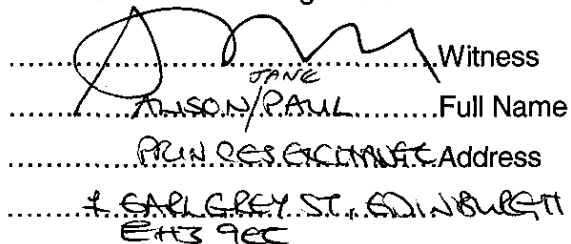 Witness
JANE
ALISON / PAUL Full Name
PRINCES EXCHANGE Address
1 EARL GREY ST, EDINBURGH
EH3 9EE